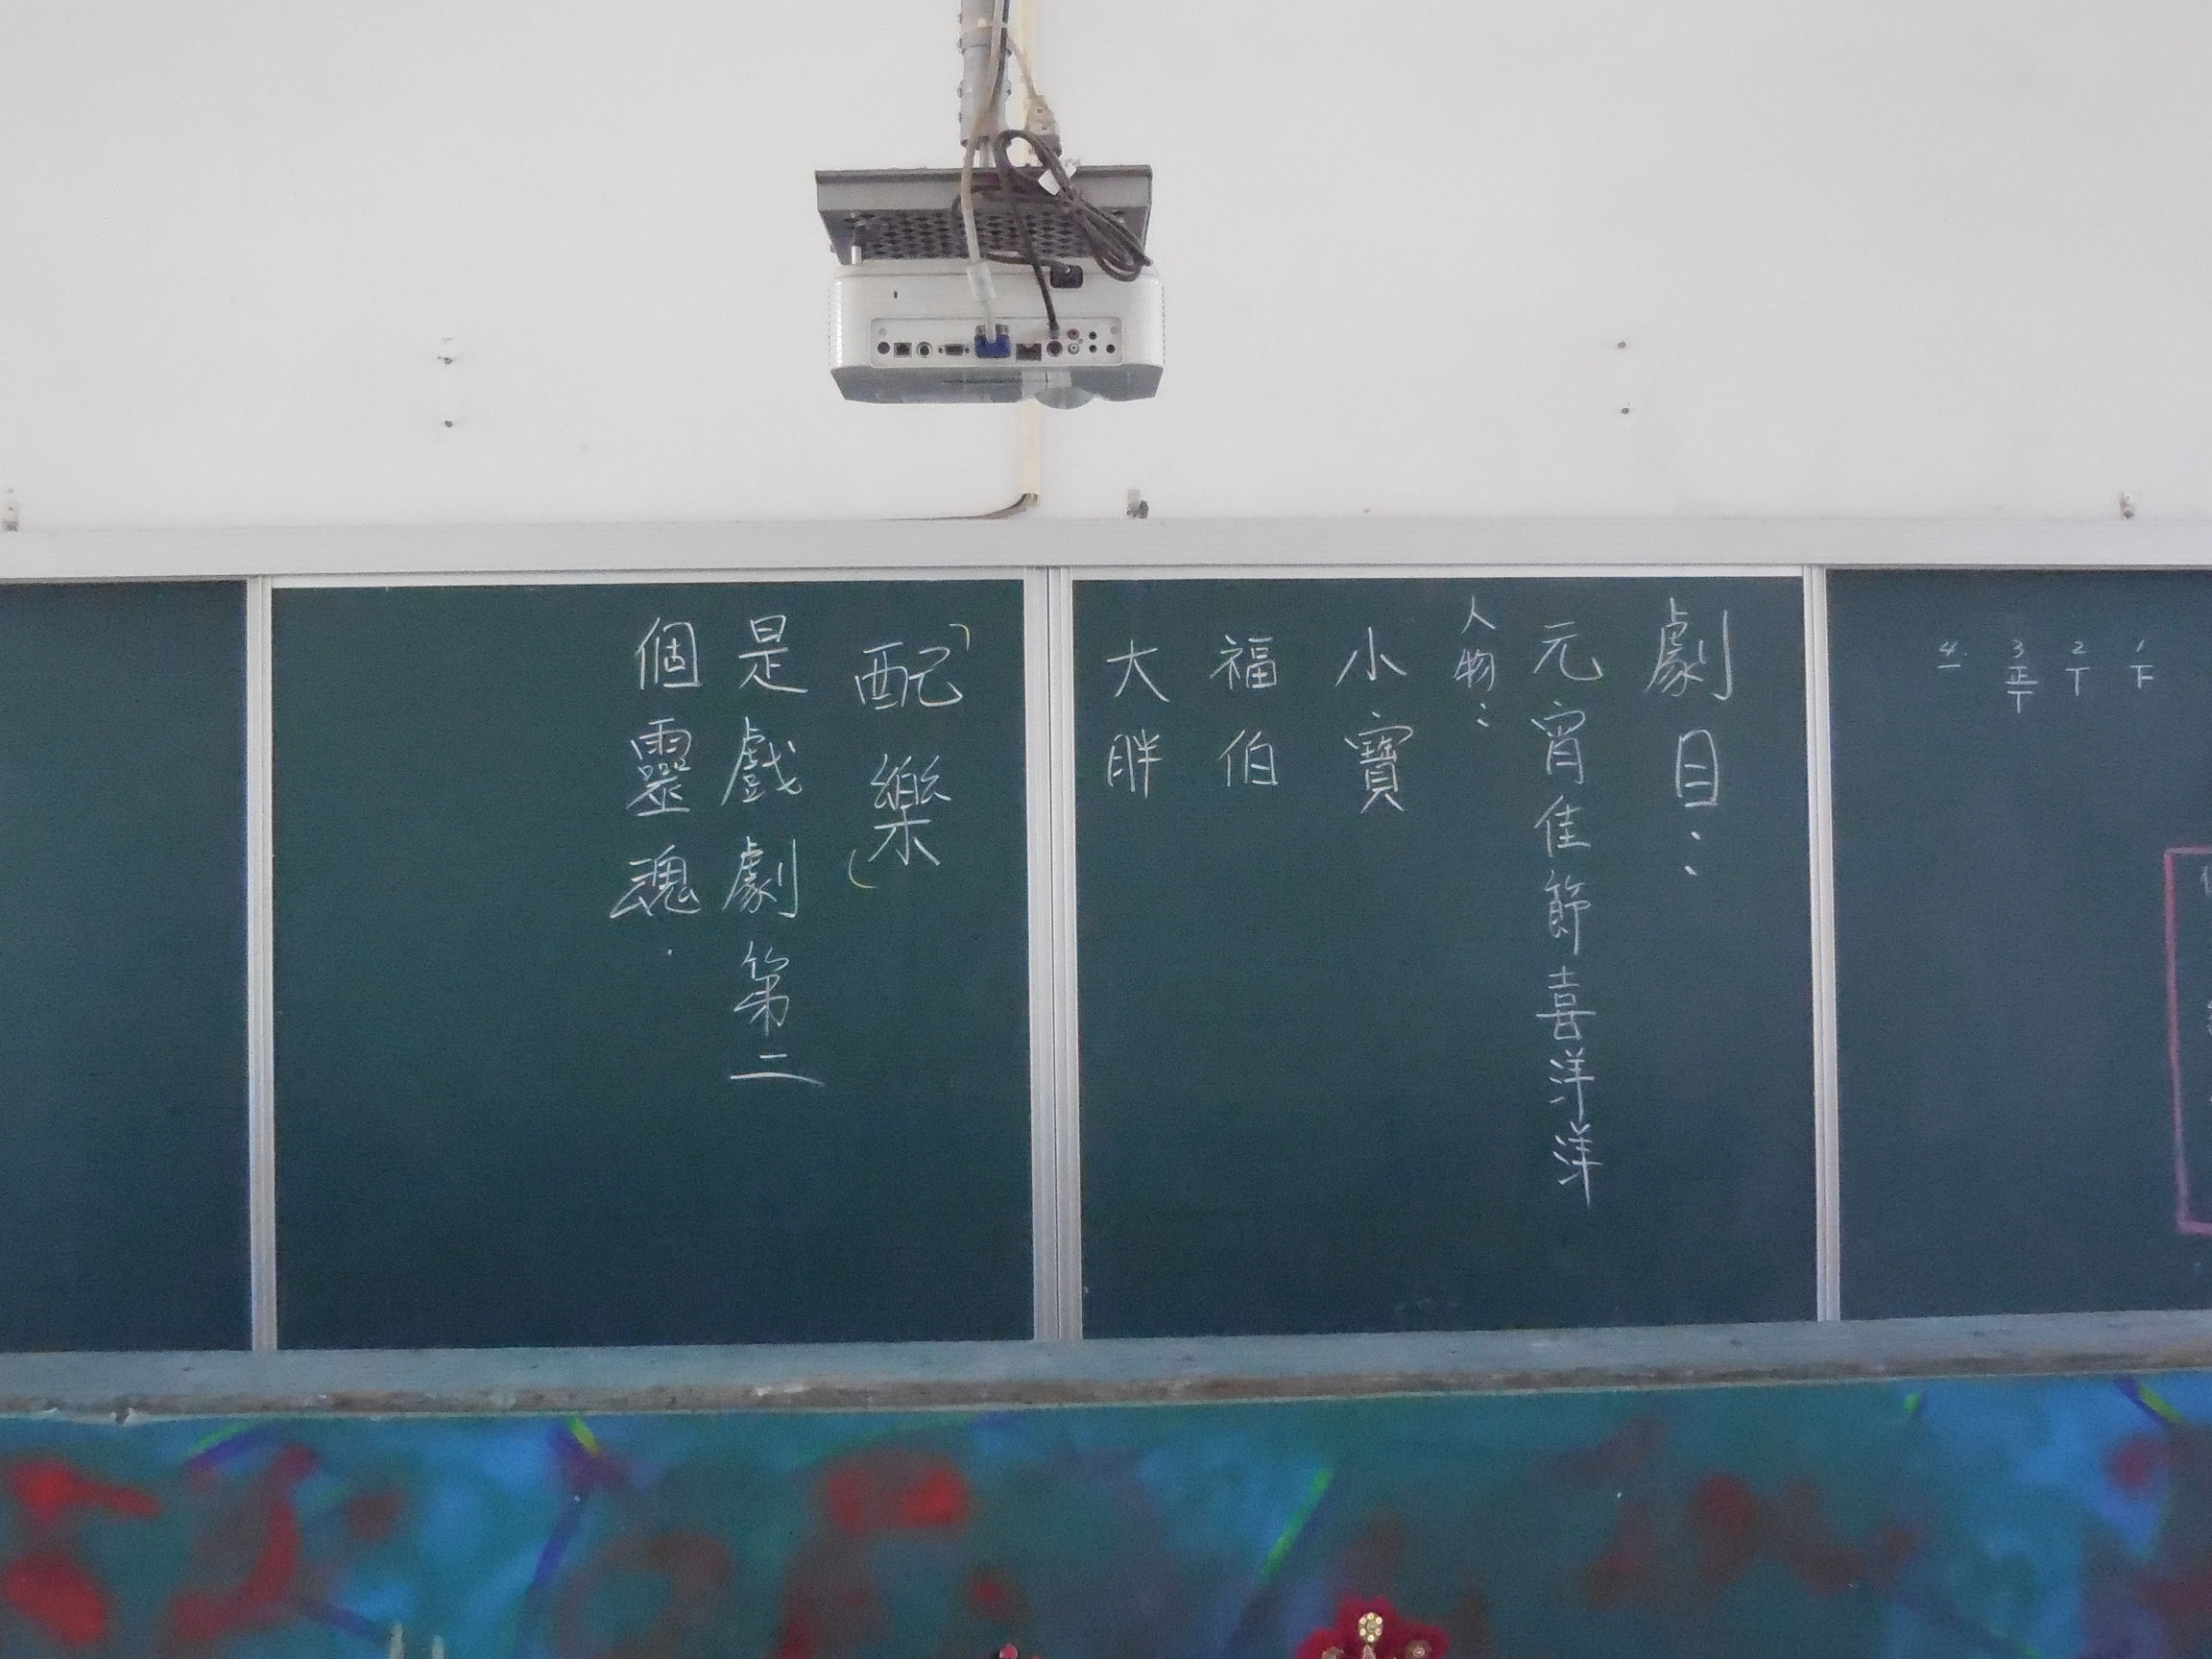 1 下
2 丅
3 正丅
4 一
劇目：
元宵佳節喜洋洋
人物：
小寶
福伯
大胖
「配樂」
是戲劇第二
個靈魂.